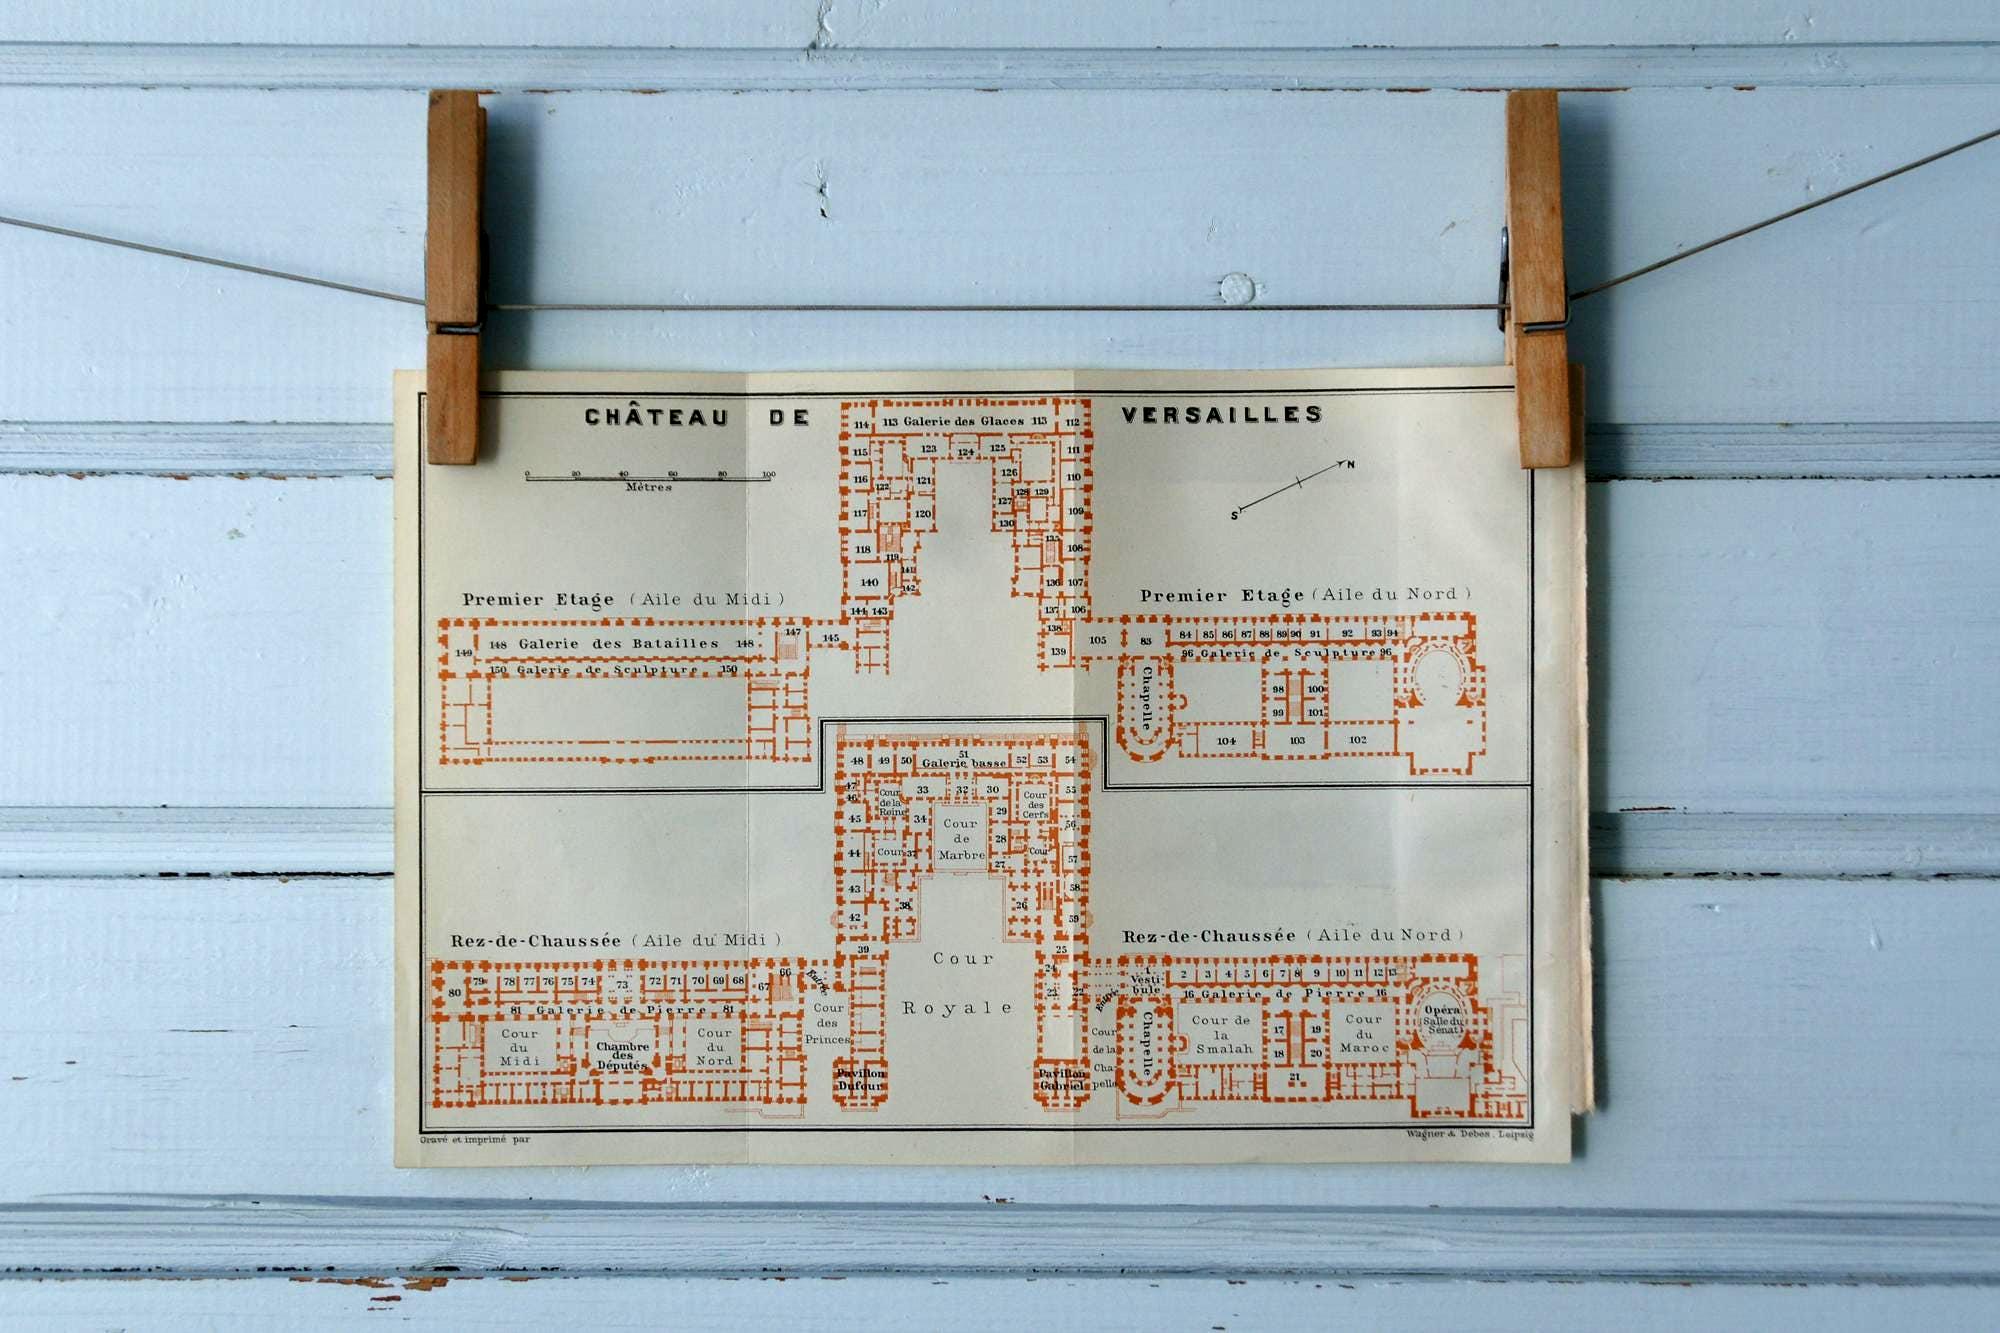 CHÂTEAU DE VERSAILLES
0 20 40 60 80 100
Mètres
N
S
114 113 Galerie des Glaces 113 112
115 123 124 125 111
116 122 121 126 110
128 129
117 120 127 109
130
118 119 135 108
140 141 136 107
142
144 143 137 106
Premier Etage (Aile du Midi)
Premier Etage (Aile du Nord)
149 148 Galerie des Batailles 148 147 145
150 Galerie de Sculpture 150
138
139
105 83 84 85 86 87 88 89 90 91 92 93 94
96 Galerie de Sculpture 96
Chapelle
98 100
99 101
104 103 102
51
48 49 50 Galerie basse 52 53 54
47
46
Cour
de la
Reine
33 32 30
Cour
des
Cerfs
55
45 34
Cour
de
Marbre
29 56
44 Cour 37 28 Cour 57
27
43 58
42 38 26 59
39 25
Rez-de-Chaussée (Aile du Midi)
Rez-de-Chaussée (Aile du Nord)
Cour
Royale
80 79 78 77 76 75 74 73 72 71 70 69 68 67 66
81 Galerie de Pierre 81
Entrée
Cour
du
Midi
Chambre
des
Députés
Cour
du
Nord
Cour
des
Princes
Pavillon
Dufour
24
23 22
Entrée
Pavillon
Gabriel
Cour
de la
Cha-
pelle
1
Vesti-
bule
2 3 4 5 6 7 8 9 10 11 12 13
16 Galerie de Pierre 16
Chapelle
Cour de
la
Smalah
17 19
18 20
21
Cour
du
Maroc
Opéra
Salle du
Sénat
Gravé et imprimé par
Wagner & Debes, Leipzig